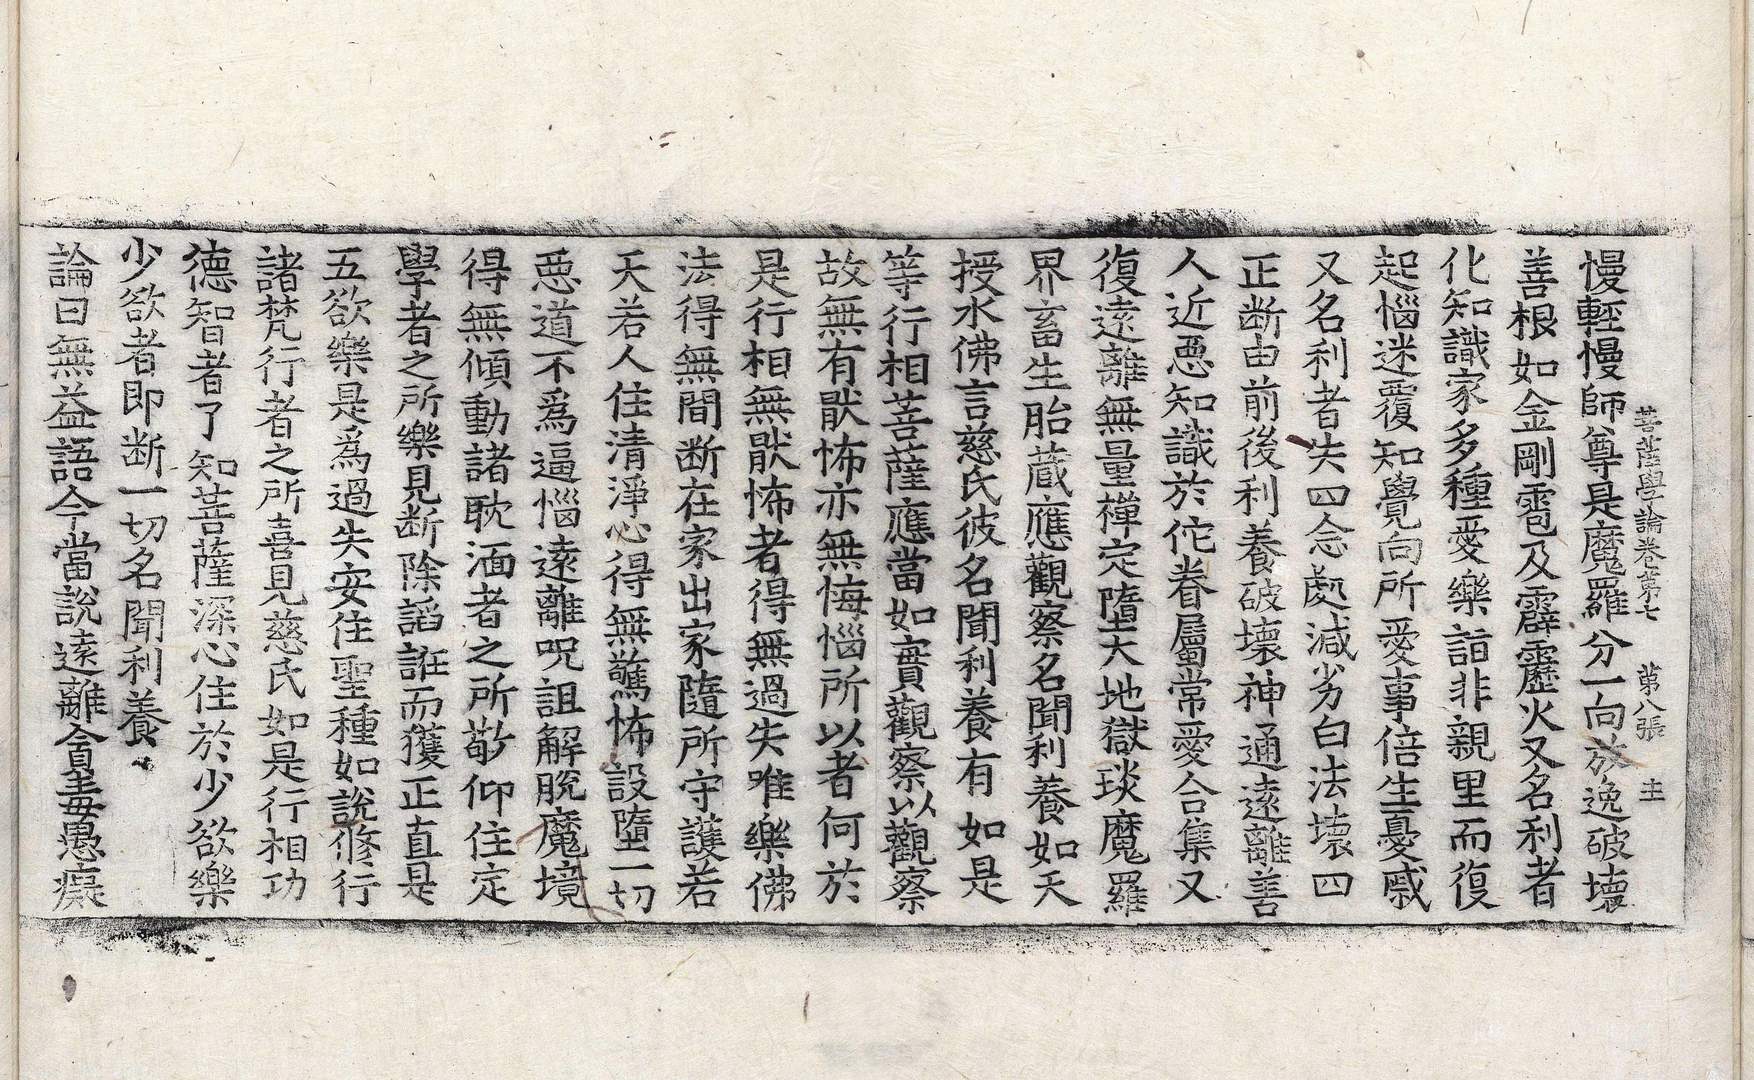 菩薩學論卷第七　第八張　主
慢輕慢師尊是魔羅分一向放逸破壞
善根如金剛雹及霹靂火又名利者
化知識家多種愛樂詣非親里而復
起惱迷覆知覺向所愛事倍生憂慼
又名利者失四念處減劣白法壞四
正断由前後利養破壞神通遠離善
人近惡知識於佗眷屬常愛合集又
復遠離無量禪定墮大地獄琰魔羅
界畜生胎蔵應觀察名聞利養如天
授水佛言慈氏彼名聞利養有如是
等行相菩薩應當如實觀察以觀察
故無有猒怖亦無悔惱所以者何於
是行相無猒怖者得無過失唯樂佛
法得無間断在家出家隨所守護若
天若人住清淨心得無驚怖設墮一切
惡道不為逼惱遠離呪詛解脫魔境
得無傾動諸耽湎者之所敬仰住定
學者之所樂見断除謟誑而獲正直是
五欲樂是為過失安住聖種如說修行
諸梵行者之所喜見慈氏如是行相功
德智者了知菩薩深心住於少欲樂
少欲者即断一切名聞利養
論曰無益語今當說遠離會喜毒愚癡